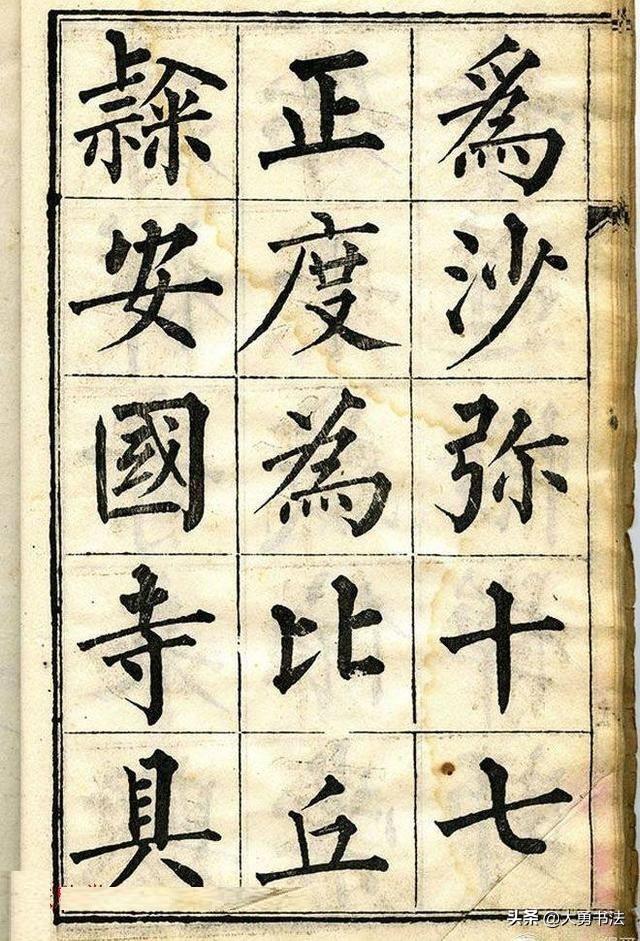 爲沙弥十七
正度為比丘
隸安國寺具
头条 @大勇书法